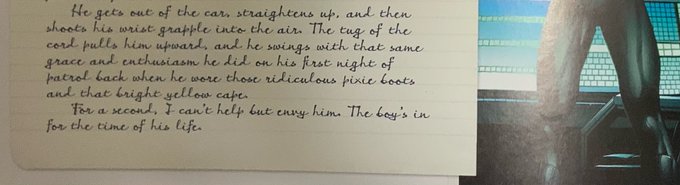 He gets out of the car, straightens up, and then
shoots his wrist grapple into the air. The tug of the
cord pulls him upward, and he swings with that same
grace and enthusiasm he did on his first night of
patrol back when he wore those ridiculous pixie boots
and that bright yellow cape.
For a second, I can't help but envy him. The boy's in
for the time of his life.